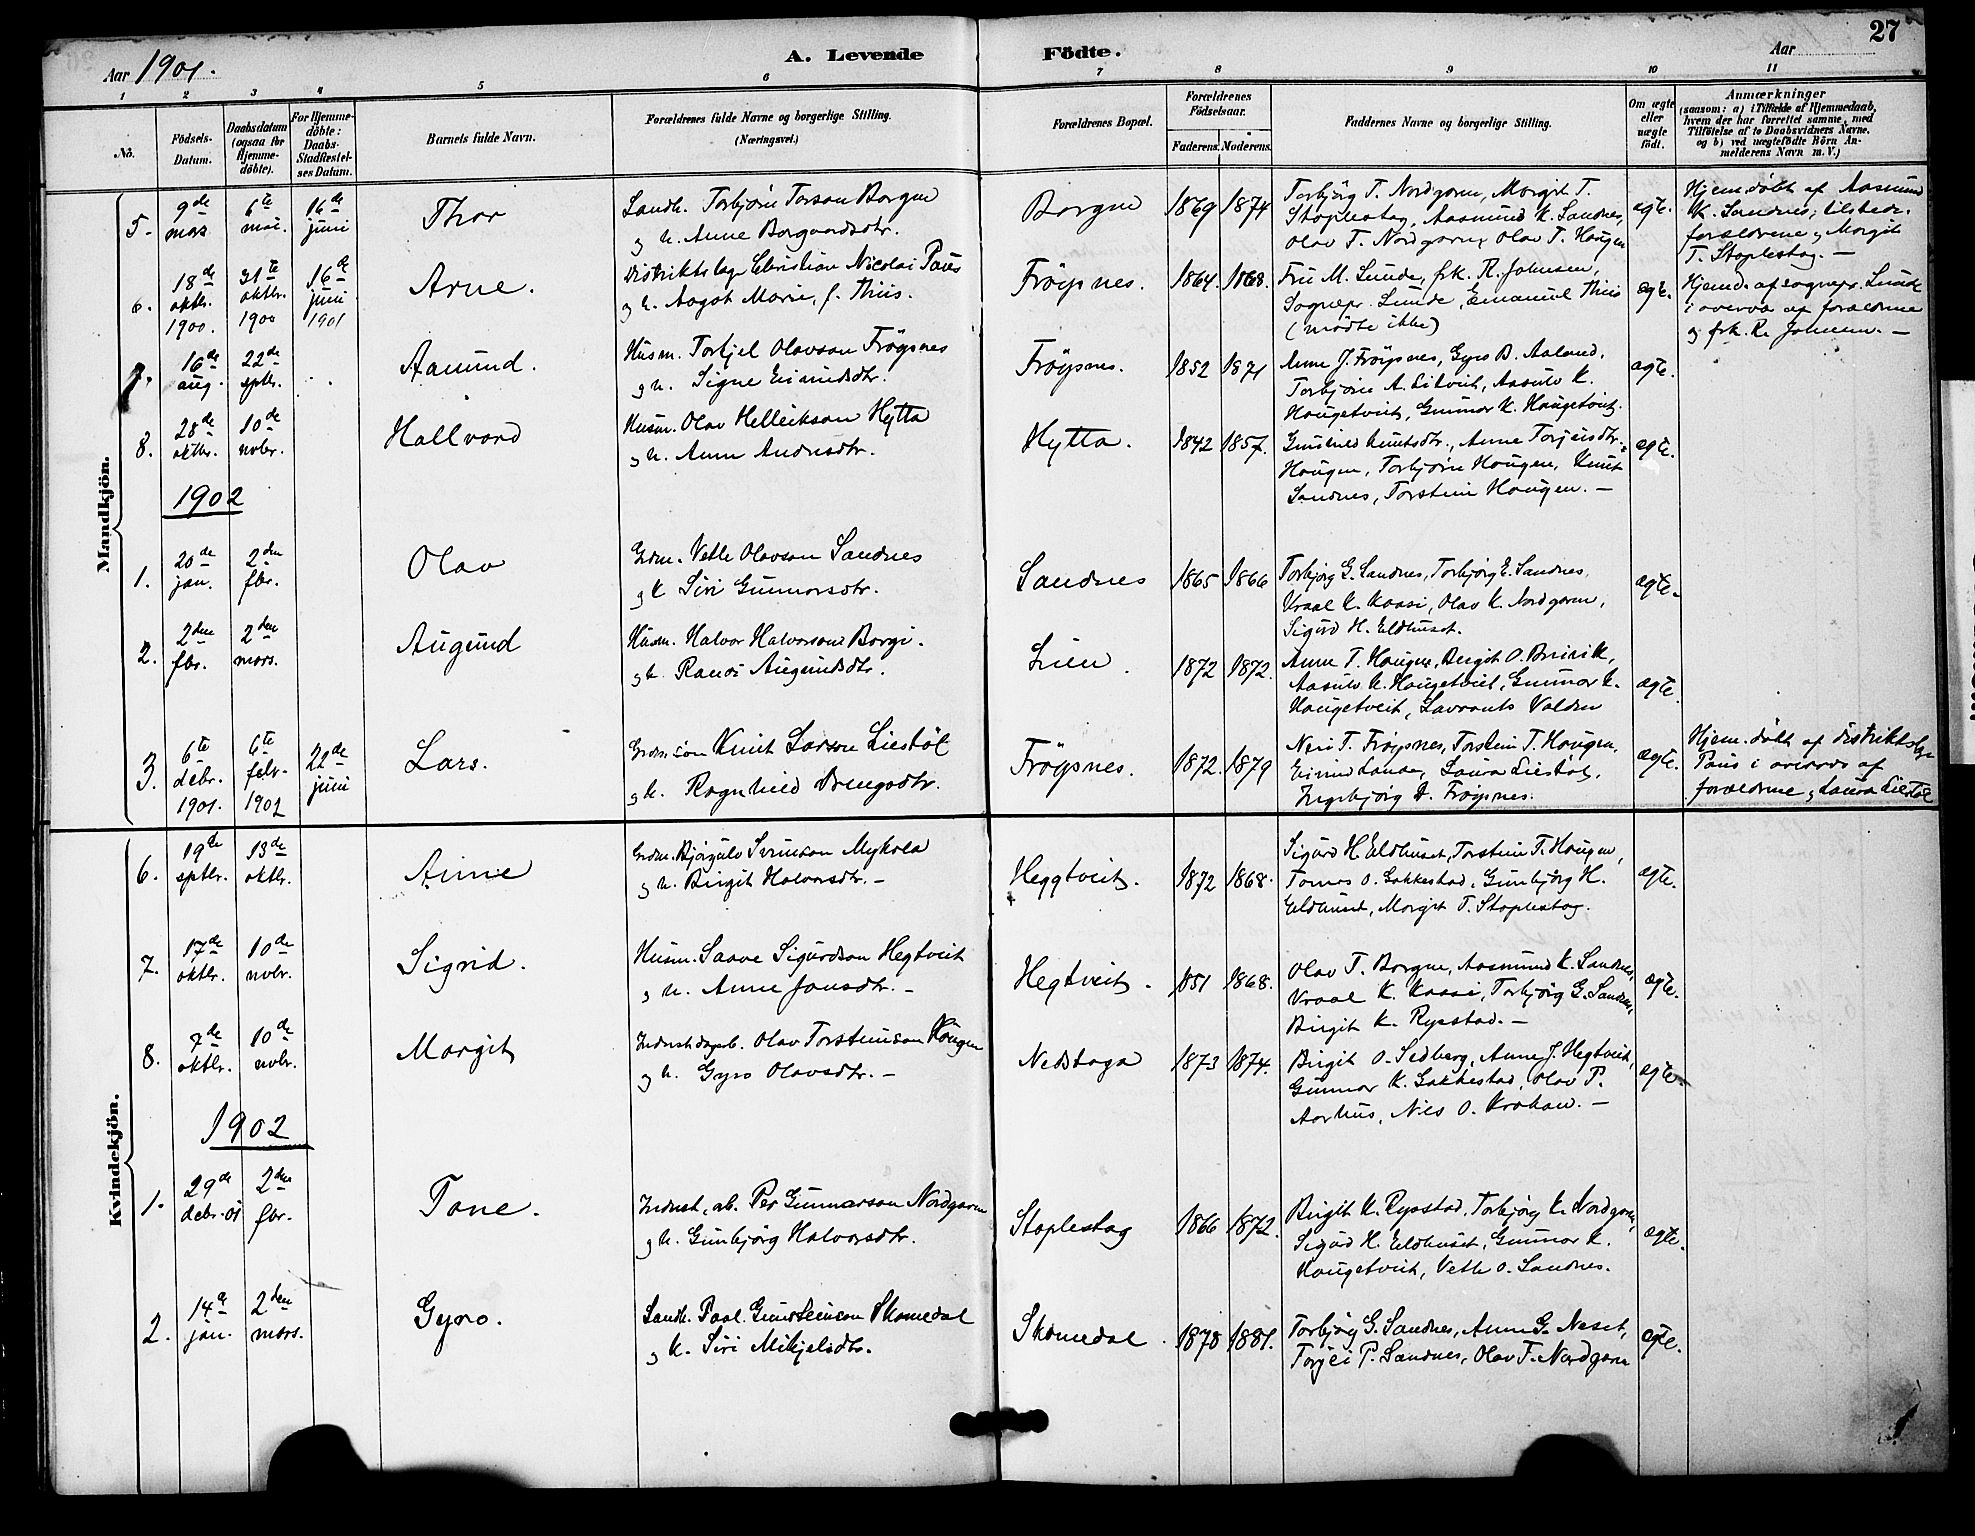 27
Aar 1901.
A. Levende Födte.
Aar
1 2 3 4 5 6 7 8 9 10 11
No.
Födsels-Datum.
Daabsdatum (ogsaa for Hjemme-döbte).
For Hjemme-döbte: Daabs-Stadfæstel-ses Datum.
Barnets fulde Navn.
Forældrenes fulde Navne og borgerlige Stilling.
(Næringsvei.)
Forældrenes Bopæl.
Forældrenes Födselsaar.
Faderens. Moderens.
Faddernes Navne og borgerlige Stilling.
Om ægte eller uægte födt.
Anmærkninger
(saasom: a) i Tilfælde af Hjemmedaab,
hvem der har forrettet samme, med
Tilföielse af to Daabsvidners Navne.
og b) ved uægtefödte Börn An-
melderens Navn m. V.)
Mandkjön.
5. 9de mars 6te mai. 16de juni Thor
Landh. Torbjörn Torson Borgne
g h. Anne Borgvardsdtr.
Borgne 1869 1874
Torbjörg T. Nordgaren, Margit T.
Stoplestog, Aasmund K. Sandnes,
Olav T. Nordgaren, Olav T. Hougen
ægte.
Hjem.döbt af Aasmund
K. Sandnes; tilstede.
forældrene g Margit
T. Stoplestog. –
6. 18de oktbr. 1900. 31te oktbr. 1900 16de juni 1901 Arne.
Distriktslæge Christian Nicolai Paus
g h. Aagot Marie, f. Thiis.
Fröysnes. 1864. 1868.
Fru M. Lunde, frk. R. Johnsen,
Sognepr. Lunde, Emanuel Thiis
(mödte ikke)
ægte.
Hjemd. af sognepr. Lunde
i overvær af forældrene
g frk. R. Johnsen. –
7. 16de aug. 22de sptbr. Aamund.
Husm. Torkjel Olavson Fröysnes
g h. Signe Eivindsdtr.
Fröysnes. 1852 1871
Anne J. Fröysnes, Gyro B. Aaland,
Torbjörn A. Litveit, Aasulv K.
Hougetveit, Gunnar K. Hougetveit.
ægte.
8. 28de oktbr. 10de novbr. Hallvard
Husm. Olav Helleikson Hytta
g h. Anne Andersdtr.
Hytta. 1842 1857.
Gunhild Knutsdtr., Anne Torjeisdtr.
Hougen, Torbjörn Hougen, Knut
Sandnes, Torstein Hougen. –
ægte.
1902
1. 20de jan. 2den fbr. Olav
Grdm. Vetle Olavson Sandnes
g k Siri Gunnarsdtr.
Sandnes 1865 1866
Torbjörg G. Sandnes, Torbjörg E. Sandnes,
Vraal K. Kaasi, Olav K. Nordgaren,
Sigurd H. Eldhuset.
ægte.
2. 2den fbr. 2den mars. Augund
Husm. Halvor Halvorsons Borgi.
g h. Ranei Augundsdtr.
Lien. 1872 1872.
Anne T. Hougen, Birgit O. Breivik,
Aasulv K. Hougetveit, Gunnar K.
Hougetveit, Lavrants Valden
ægte.
3. 6te debr. 1901. 6te febr. 1902 22de juni Lars.
Grdm.sön Knut Larson Liestöl
g h. Ragnhild Drengsdtr.
Fröysnes. 1872. 1879
Neri T. Fröysnes, Torstein T. Hougen,
Eivind Lande, Laura Liestöl,
Ingebjörg D. Fröysnes.
ægte.
Hjem.döbt af distriktslæge
Paus i overvær af
forældrene g Laura Liestöl
Kvindekjön.
6. 19de sptbr. 13de oktbr. Anne
Grdm. Bjørgulv Sveinson Myhola
g h. Birgit Halvorsdtr. –
Heggtveit. 1872 1868.
Sigurd H. Eldhuset, Torstein T. Hougen,
Tomas O. Gakkestad, Gunbjörg H.
Eldhuset, Margit T. Stoplestog.
ægte.
7. 17de oktbr. 10de novbr. Sigrid.
Husm. Saave Sigurdson Hegtveit
g h. Anne Jonsdtr. –
Hegtveit. 1851 1868.
Olav T. Borgne, Aasmund K. Sandnes,
Vraal K. Kaasi, Torbjörg G. Sandnes,
Birgit K. Rysstad. –
ægte.
8. 7de oktbr. 10de novbr. Margit
Industridagarb. Olav Torsteinson Hougen
g h. Gyro Olavsdtr. –
Nedstoga 1873 1874.
Birgit O. Sedberg, Anne J. Hegtveit,
Gunnar K. Gakkestad, Olav P.
Aarhus, Nils O. Krokan. –
ægte
1902
1. 29de debr. 01 2den fbr. Tone.
Indust. arb. Per Gunnarson Nordgaren
g h. Gunbjörg Halvorsdtr.
Stoplestog 1866 1872.
Birgit K. Rysstad, Torbjörg K. Nordgaren,
Sigurd H. Eldhuset, Gunnar K.
Hougetveit, Vetle O. Sandnes.
ægte.
2. 14de jan. 2den mars. Gyro.
Landh. Paal Gunsteinson Skomedal
g k. Siri Mikjelsdtr.
Skomedal. 1878 1881.
Torbjörg G. Sandnes, Anne G. Neset,
Torjei P. Sandnes, Olav T. Nordgaren
ægte.